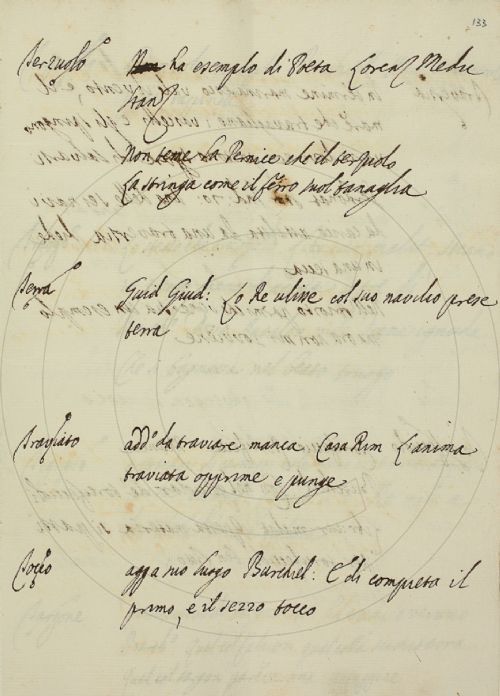 133
Terzuolo Non ha esempio di Poeta Lorenz Medic
stanz
Non teme la Pernice che il terzuolo
La stringa come il ferro suol tanaglia
Terra Guid Giud: Lo Re ulive col suo navilio prese
terra
Traviato add.º da traviare manca Casa Rim L'anima
traviata opprime e punge
Tocco a suo luogo Burchiel: E di compieta il
primo, e il sezzo tocco